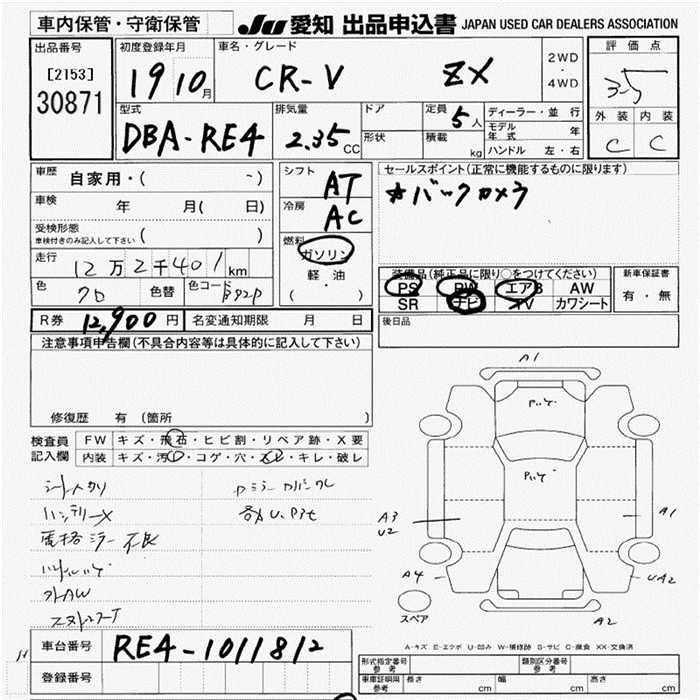 車内保管・守衛保管
JU 愛知 出品申込書 JAPAN USED CAR DEALERS ASSOCIATION
出品番号
[2153]
30871
初度登録年月
19 10月
車名・グレード
CR-V ZX
2WD
・
4WD
評価点
3.5
外装 内装
C C
型式
DBA-RE4
排気量
2.35 CC
ドア
形状
定員 5人
積載 kg
ディーラー・並行
モデル年式 年
ハンドル 左・右
車歴 自家用・( ~)
車検 年 月( 日)
受検形態
車検付きのみ記入して下さい ( )
走行 12万2千401km
色 色替 色コード B92P
シフト AT
冷房 AC
燃料
ガソリン
軽・油
( ・ )
セールスポイント(正常に機能するものに限ります)
☆バックカメラ
装備品(純正品に限り○をつけてください)
PS PW エアB AW
SR ナビ TV カワシート
新車保証書
有・無
後日品
R券 12,900円 名変通知期限 月 日
注意事項申告欄(不具合内容等は具体的に記入して下さい)
修復歴 有(箇所
検査員
記入欄
FW キズ・飛石・ヒビ割・リペア跡・X要
内装 キズ・汚レ・コゲ・穴・スレ・キレ・破レ
A1
A3
U2
A1
A4
UA2
A2
スペア
A-キズ E-エクボ U-凹み W-補修跡 S-サビ C-腐食 XX-交換済
車台番号 RE4-1011812
登録番号
形式指定番号
参考
類別区分番号
参考
車庫証明用
参考
長さ cm 幅 cm 高さ cm